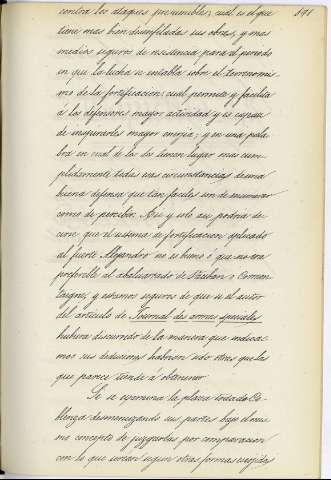 191
contra los ataques presumibles; cual es el que
tiene mas bien desenfiladas sus obras, y mas
medios seguros de resistencia para el periodo
en que la lucha se entabla sobre el terreno mis-
mo de la fortificacion: cual permite y facilita
á los defensores mayor actividad y es capaz
de inspirarles mayor energia; y en una pala-
bra en cual de los dos tienen lugar mas cum-
plidamente todas esas circunstancias de una
buena defensa que tan faciles son de enumerar
como de percibir. Asi y solo asi podria de-
cirse que el sistema de fortificacion aplicado
al fuerte Alejandro no es bueno ó que no era
preferible al abaluartado de Vauban o Cormon-
taigne; y estamos seguros de que si el autor
del articulo de Journal des armes speciales
hubiera discurrido de la manera que indica-
mos sus deducciones habrian sido otras que las
que parece tiende á obtener.
Si se examina la plaza toda de Co-
blenza desmenuzando sus partes bajo el mis-
mo concepto de juzgarlas por comparacion
con lo que serian segun otras formas exijidas